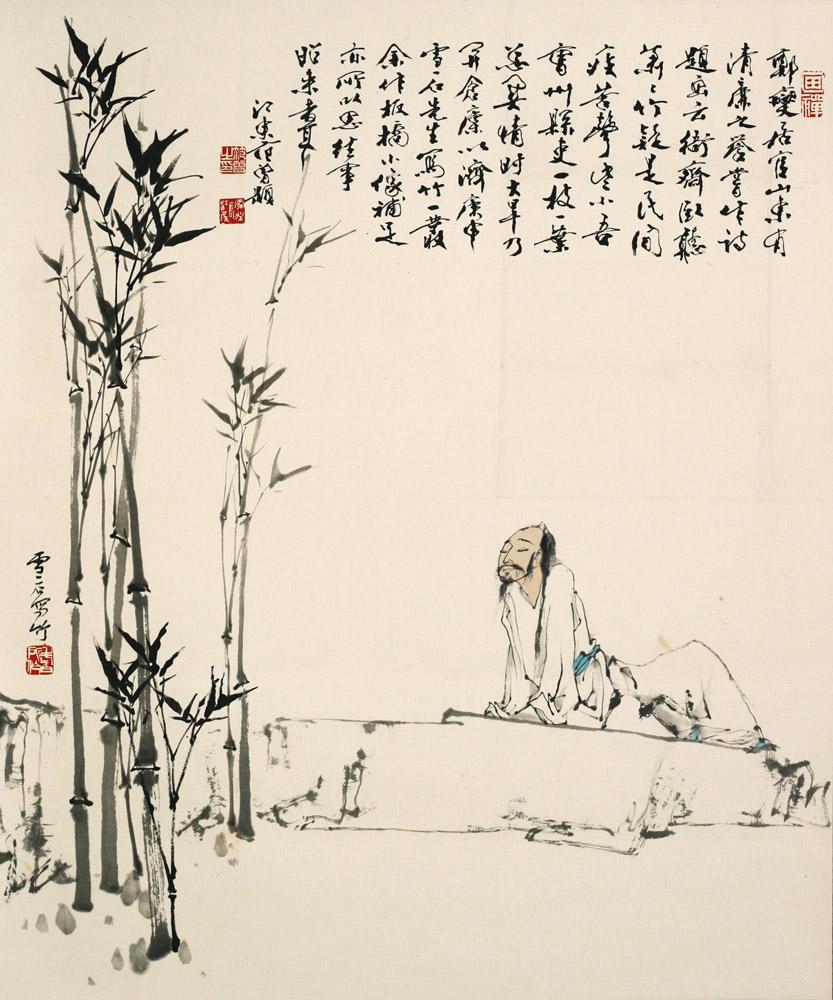 鄭燮居官山東有
清廉之譽嘗作詩
題画云衙齋卧聽
蕭々竹疑是民間
疾苦聲些小吾
曹州縣吏一枝一葉
总關情時大旱乃
開倉廩以濟庚申
雪石先生寫竹一叢
余作板橋小像補足
亦所以思往事
昭来者耳
江東范曾題
雪石寫竹